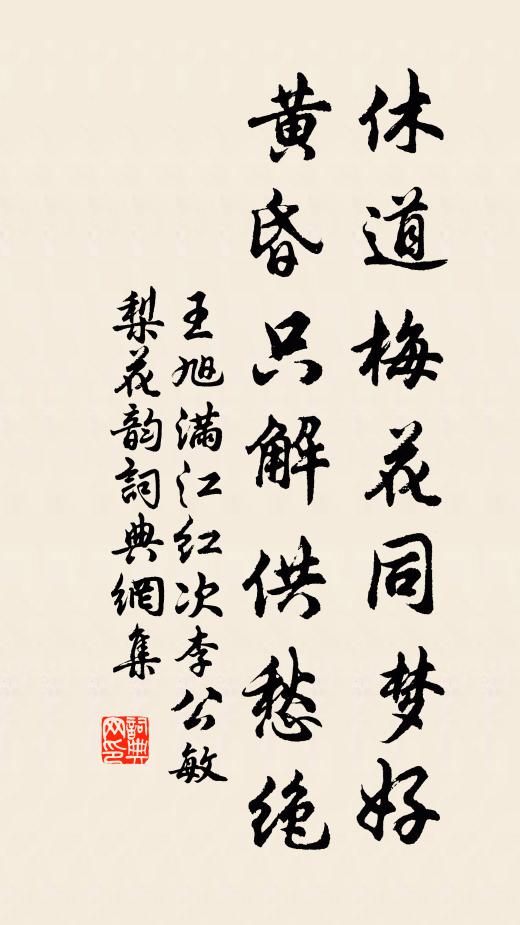 休道梅花同梦好
黄昏只解供愁绝
王旭满江红次李公敏
梨花韵詞典網集
詞典網印